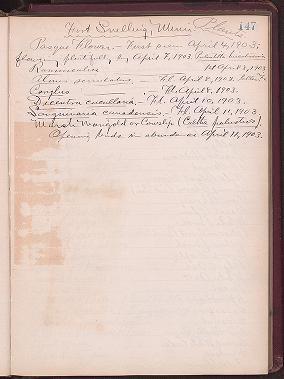 147
Fort Snelling, Minn. Plants
Pasque flower. - First seen April 6, 1903;
flowing plentifully by April 7, 1903.
Ranunculus Fl. April 8, 1903
Alnus serrulatus. Fl. April 8, 1903.
Corylus Fl. April 8, 1903.
Dicentra cucullaria. - Fl. April 10, 1903.
Sanguinaria canadensis. - Fl. April 11, 1903
Marsh Marigold or Cowslip (Caltha palustris)
Opening buds in abundance April 11, 1903.